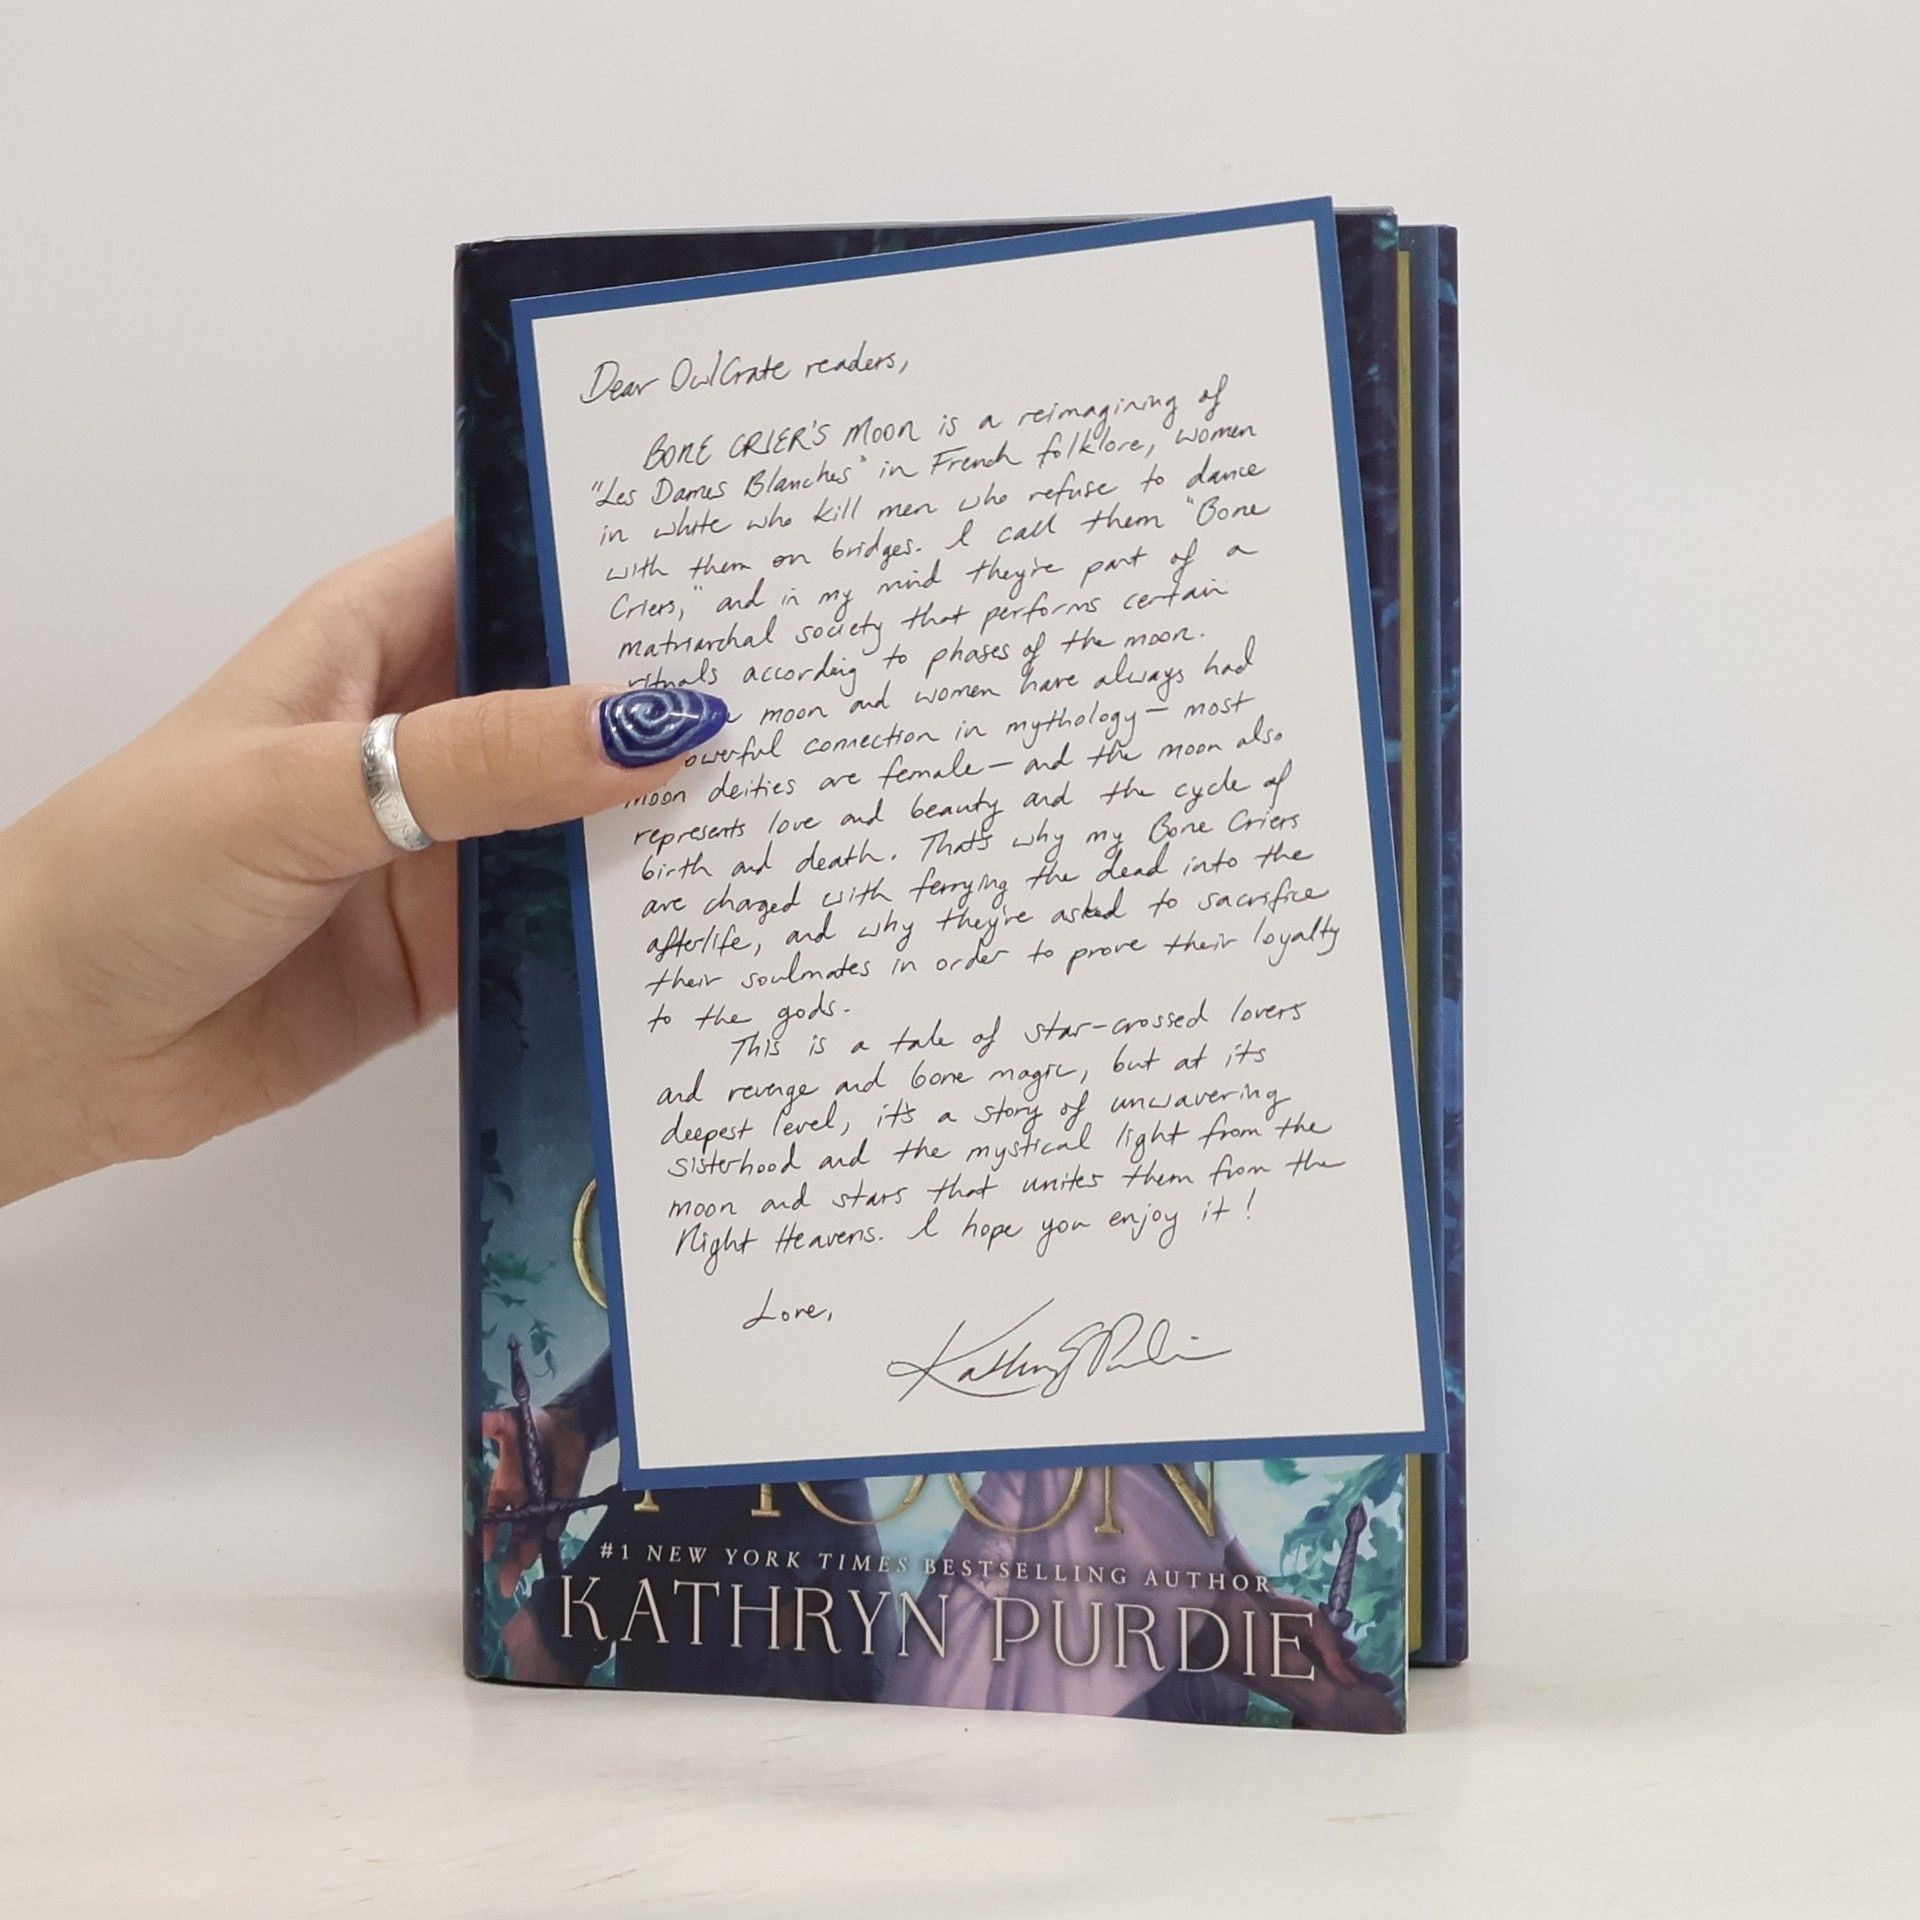 Dear OwlCrate readers,
BONE CRIER'S MOON is a reimagining of
"Les Dames Blanches" in French folklore, women
in white who kill men who refuse to dance
with them on bridges. I call them "Bone
Criers," and in my mind they're part of a
matriarchal society that performs certain
rituals according to phases of the moon.
moon and women have always had
powerful connection in mythology — most
moon deities are female — and the moon also
represents love and beauty and the cycle of
birth and death. That's why my Bone Criers
are charged with ferrying the dead into the
afterlife, and why they're asked to sacrifice
their soulmates in order to prove their loyalty
to the gods.
This is a tale of star-crossed lovers
and revenge and bone magic, but at its
deepest level, it's a story of unwavering
sisterhood and the mystical light from the
moon and stars that unites them from the
Night Heavens. I hope you enjoy it!
Love,
Kathryn Purdie
MOON
#1 NEW YORK TIMES BESTSELLING AUTHOR
KATHRYN PURDIE